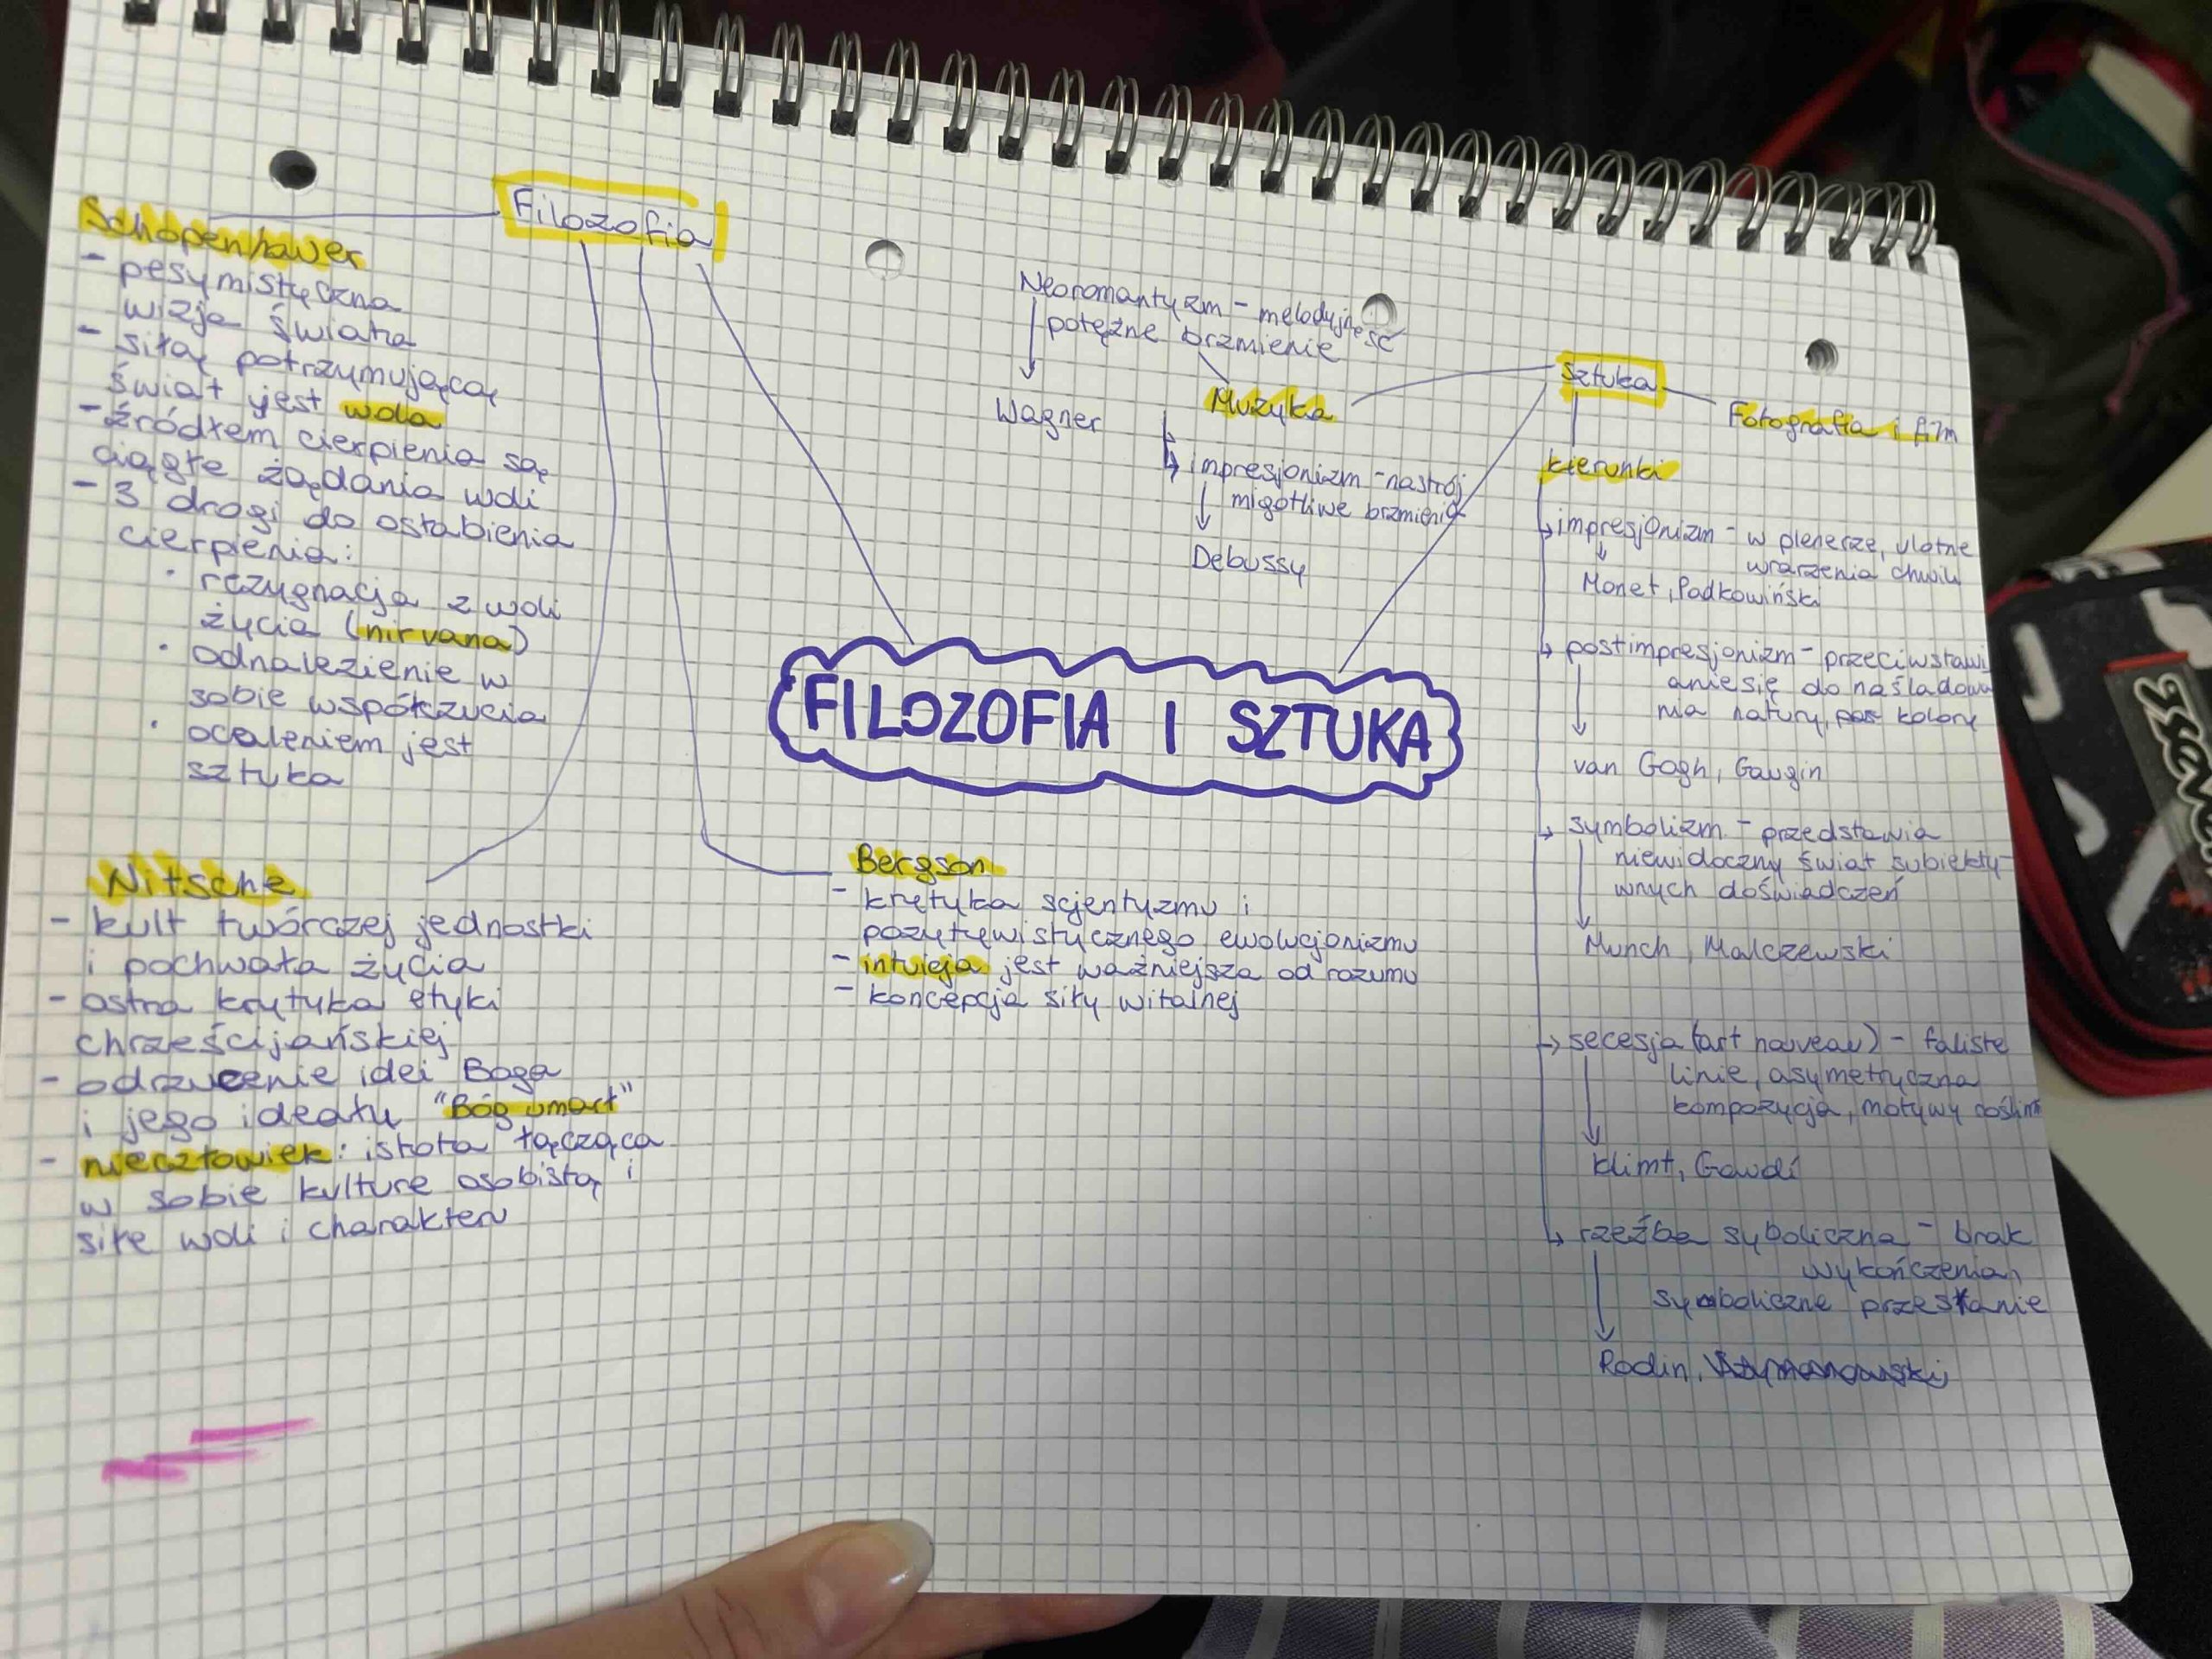 Filozofia
Schopenhawer
- pesymistyczna
wizja świata
- siłą potrzymującą
świat jest wola
- źródłem cierpienia są
ciągłe żądania woli
- 3 drogi do osłabienia
cierpienia:
• rezygnacja z woli
życia (nirvana)
• odnalezienie w
sobie współczucia
• ocaleniem jest
sztuka
Nitsche
- kult twórczej jednostki
i pochwała życia
- ostra krytyka etyki
chrześcijańskiej
- odrzucenie idei Boga
i jego ideału "Bóg umarł"
- nieczłowiek: istota łącząca
w sobie kulturę osobistą i
siłę woli i charakteru
FILOZOFIA I SZTUKA
Bergson
- krytyka scjentyzmu i
pozytywistycznego ewolucjonizmu
- intuicja jest ważniejsza od rozumu
- koncepcja siły witalnej
Neoromantyzm - melodyjność
potężne brzmienie
Wagner
Muzyka
impresjonizm - nastrój
migotliwe brzmienia
Debussy
Sztuka
Fotografia i film
kierunki
impresjonizm - w plenerze, ulotne
wrarzenia chwili
Monet, Podkowiński
postimpresjonizm - przeciwstawi
anie się do naśladowa
nia natury, kolory
van Gogh, Gaugin
symbolizm - przedstawia
niewidoczny świat subiekty-
wnych doświadczeń
Munch, Malczewski
secesja (art nouveau) - faliste
linie, asymetryczna
kompozycja, motywy roślinne
Klimt, Gaudí
rzeźba syboliczna - brak
wykończenia,
symboliczne przesłanie
Rodin,